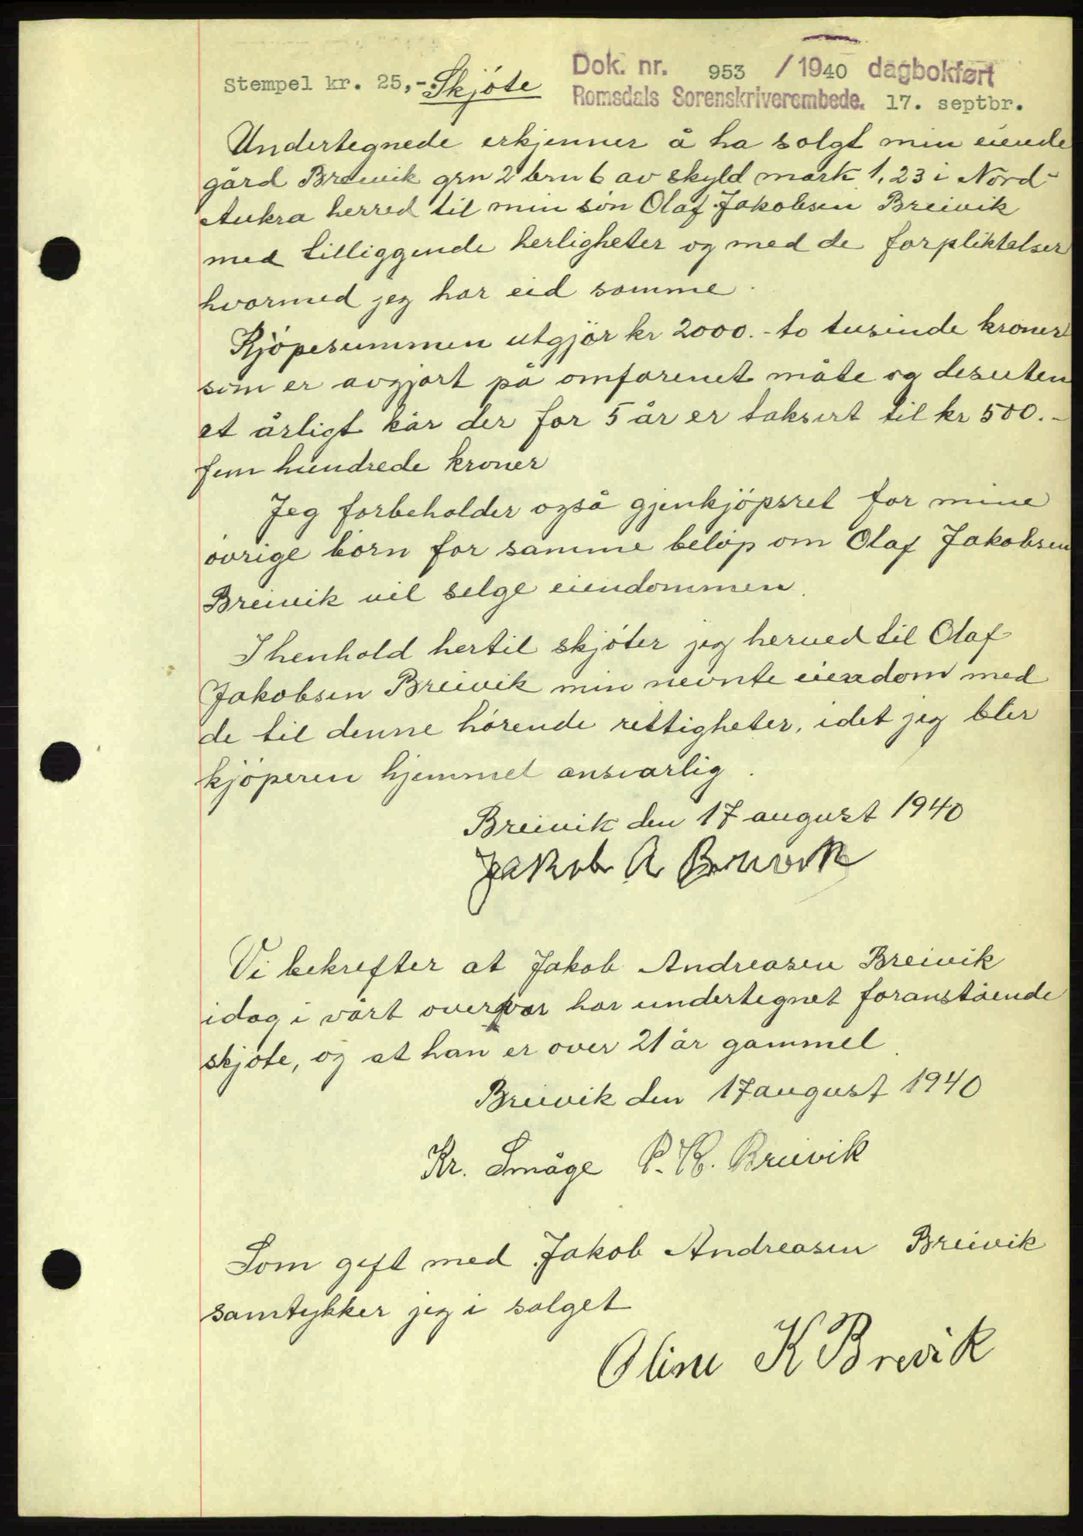 Stempel kr. 25,- Skjóte
Dok. nr. 953 /1940 dagbokført
Romsdals Sorenskriverembede. 17. septbr.
Undertegnede erkjenner å ha solgt min eiende
gård Breivik grn 2 brn 6 av skyld mark 1,23 i Nord-
Aukra herred til min søn Olaf Jakobsen Breivik
med tilliggende herligheter og med de forpliktelser
hvormed jeg har eid samme.
Kjöpesummen utgjör kr 2000.- to tusinde kroner
som er avgjort på omforenet måte og desuten
et årligt kår der for 5 år er taksert til kr 500.-
fem hundrede kroner
Jeg forbeholder også gjenkjöpsret for mine
óvrige børn for samme beløp om Olaf Jakobsen
Breivik vil selge eiendommen.
I henhold hertil skjóter jeg herved til Olaf
Jakobsen Breivik min nevnte eiendom med
de til denne hórende rettigheter, idet jeg bler
kjöperen hjemmel ansvarlig.
Breivik den 17 august 1940
Jakob A Breivik
Vi bekrefter at Jakob Andreasen Breivik
idag i vårt overvær har undertegnet foranstående
skjóte, og at han er over 21 år gammel.
Breivik den 17 august 1940
Kr. Småge P. K. Breivik
Som gift med Jakob Andreasen Breivik
samtykker jeg i salget
Oline K Brevik